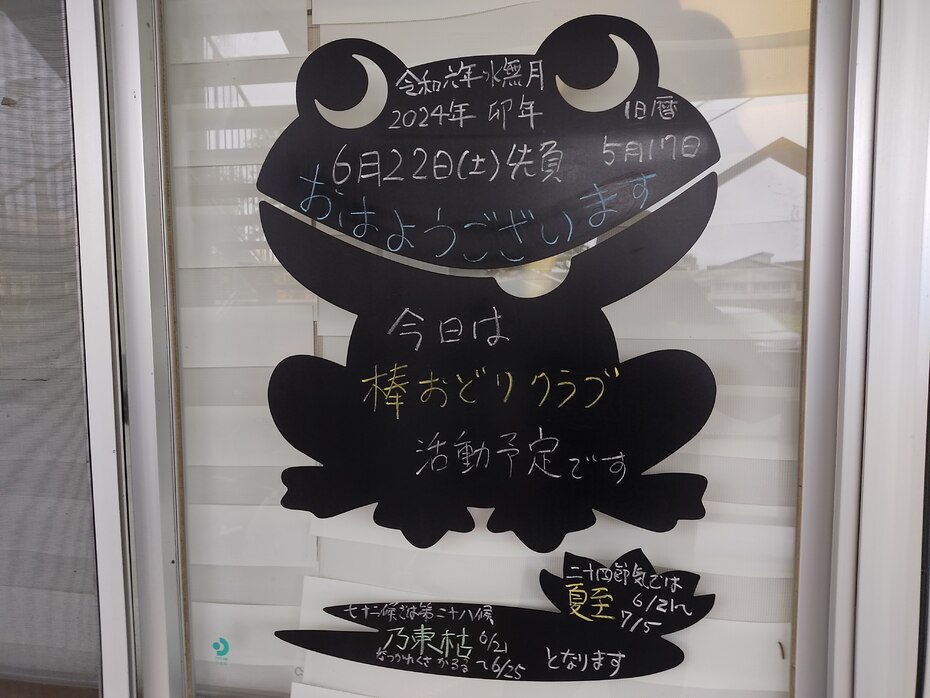 令和六年水無月
2024年 卯年
旧暦
6月22日(土)先負
5月17日
おはようございます
今日は
棒おどりクラブ
活動予定です
二十四節気では
夏至 6/21〜
7/5
七十二候では第二十八候
乃東枯 6/21
なつかれくさ かるる 〜6/25
となります